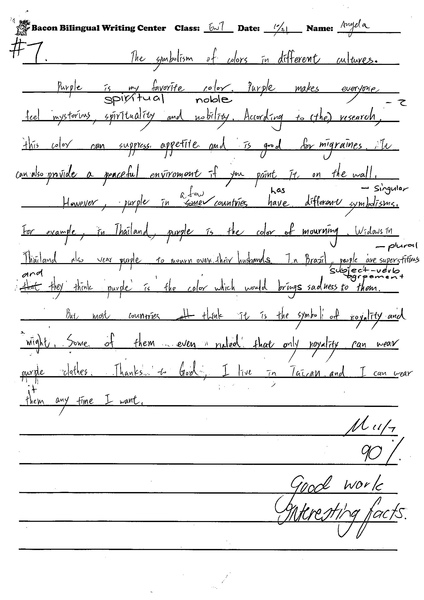 Bacon Bilingual Writing Center Class: EW7 Date: 10/21 Name: Angela
#7.
The symbolism of colors in different cultures.
Purple is my favorite color. Purple makes everyone
spiritual noble
feel mysterious, spirituality and nobility. According to (the) research,
this color can suppress appetite and is good for migraines. It
can also provide a peaceful enviroment if you paint it on the wall.
a few has - singular
However, purple in some countries have different symbolisms.
For example, in Thailand, purple is the color of mourning. Widows in
- plural
Thailand also wear purple to mourn over their husbands. In Brazil, people are superstitions
and subject-verb agreement
that they think purple is the color which would brings sadness to them.
But most countries think it is the symbol of royality and
might. Some of them even ruled that only royality can wear
purple clothes. Thanks to God, I live in Taiwan and I can wear
it
them any time I want.
90%
Good work
Interesting facts.